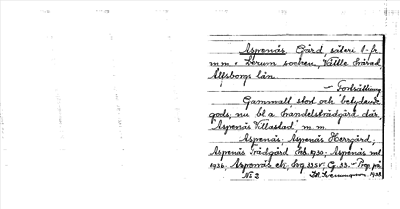 Aspenäs Gård, säteri 1-fr.
m.m. i Lerum socken, Vättle härad,
Älfsborgs län.
— Fortsättning
Gammalt, stort och betydande
gods, nu bl a handelsträdgård där,
"Aspenäs Villastad" m.m.
Aspenäs; Aspenäs Herrgård;
Aspenäs Trädgård Feb. 1930; Aspenäs
1936. Aspenäs
No 2